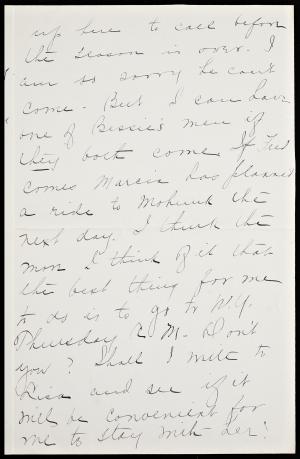 up here to call before
the season is over. I
am so sorry he can't
come. But I can have
one of Bessie's men if
they both come. If Fred
comes Marcia has planned
a ride to Mohunk the
next day. I think the
more I think of it that
the best thing for me
to do is to go to N.Y.
Thursday A.M. Don't
you? Shall I write to
Lisa and see if it
will be convenient for
me to stay with her?